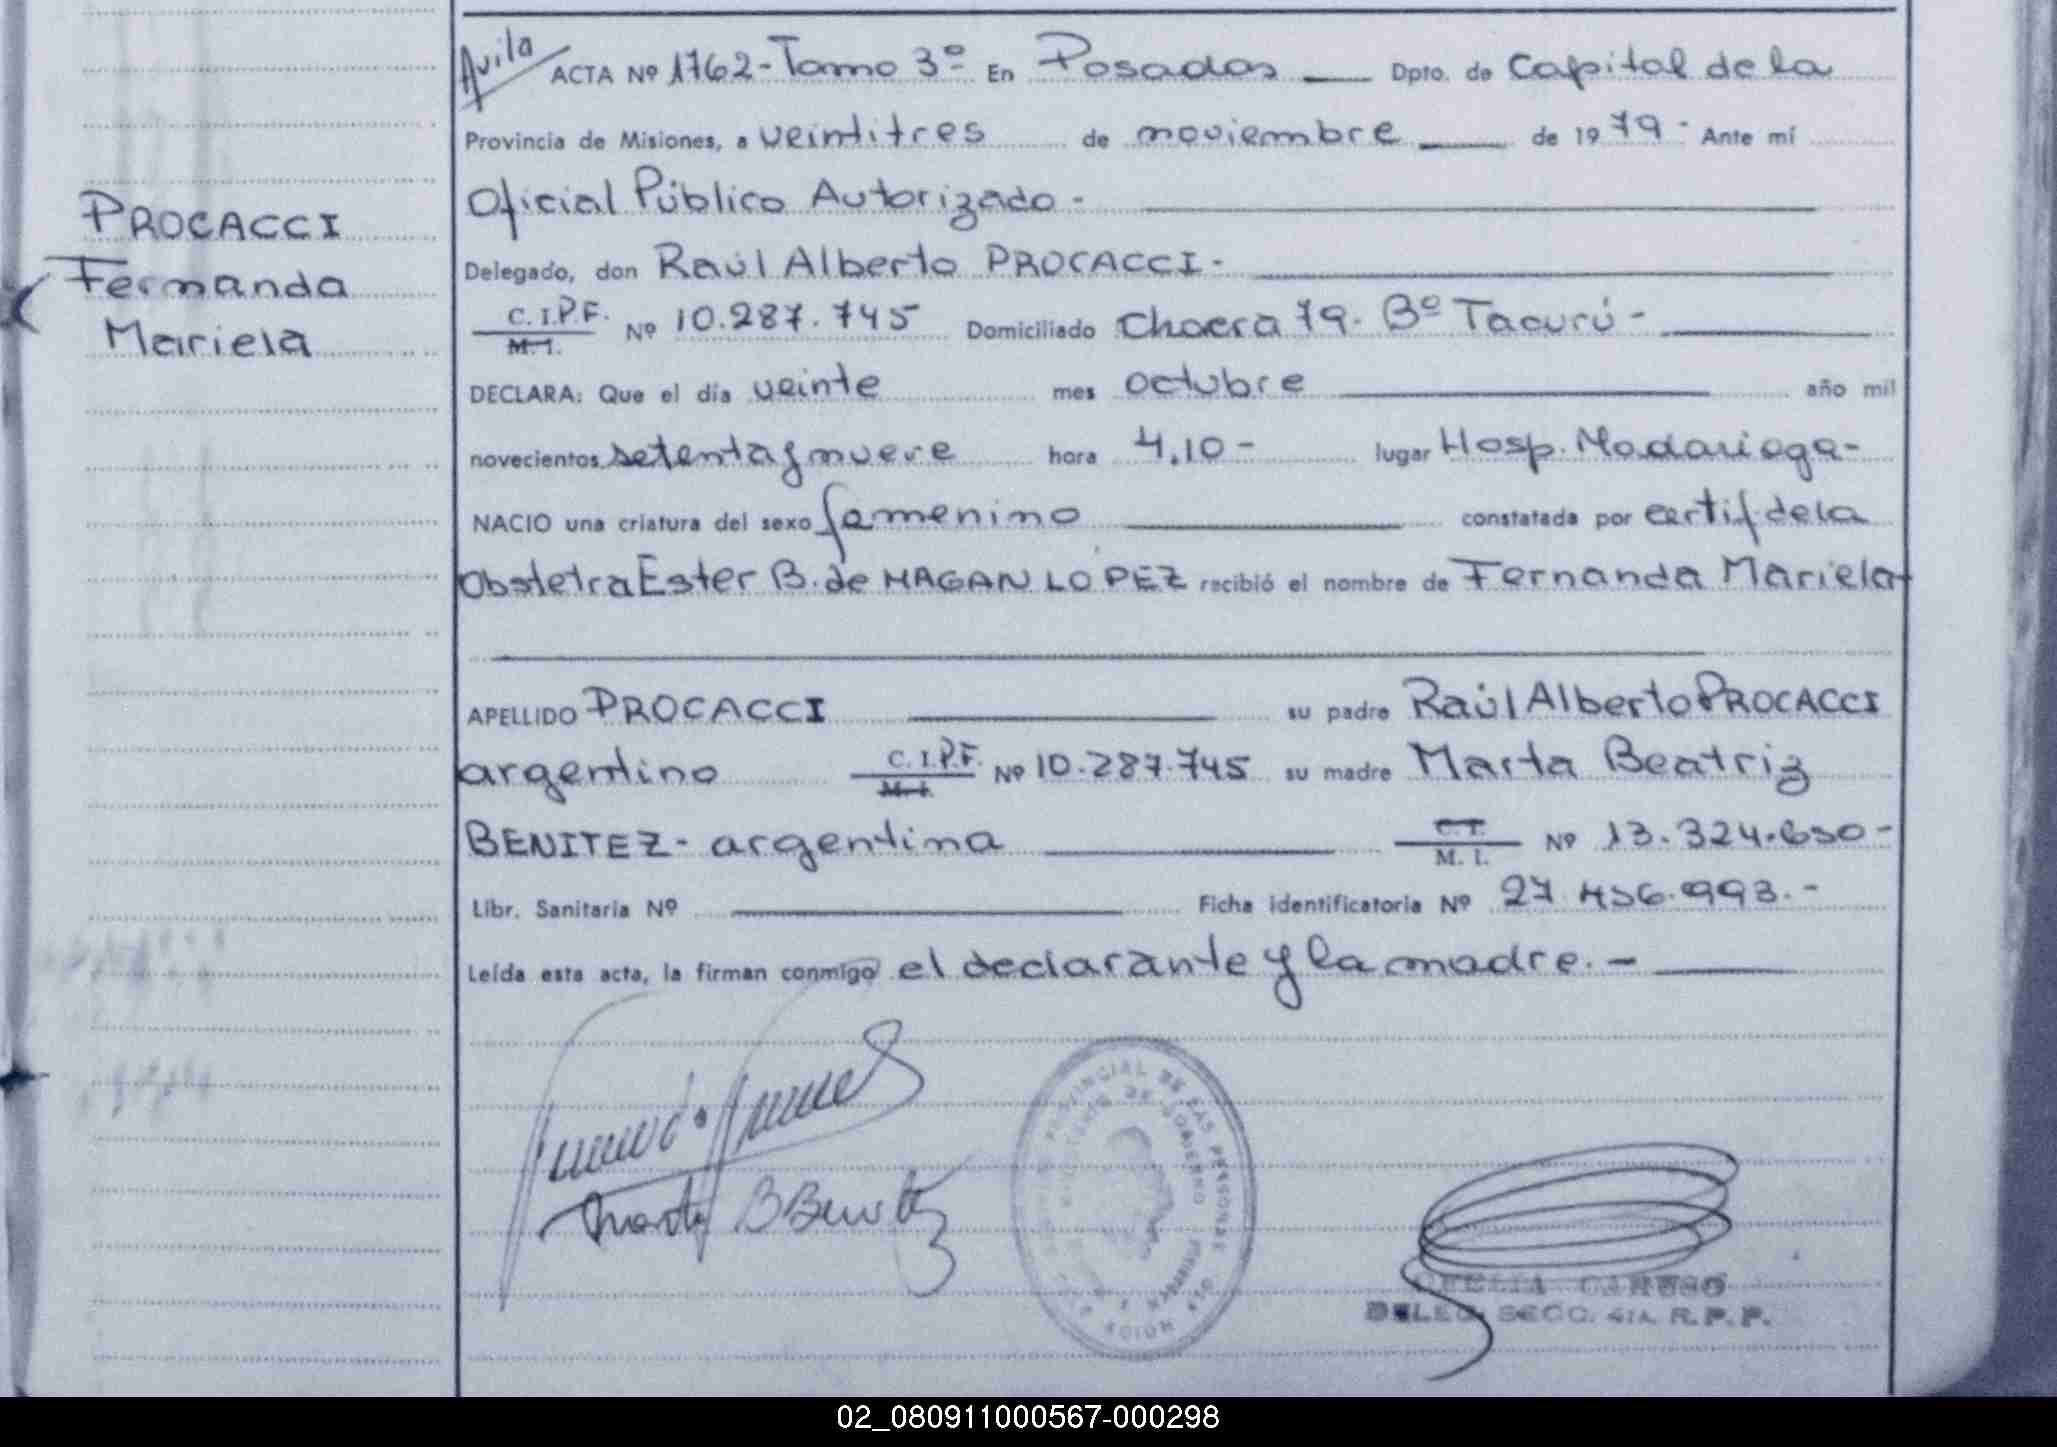 Avila ACTA Nº 1762-Tomo 3º En Posadas Dpto. de Capital de la
Provincia de Misiones, a veintitres de noviembre de 1979- Ante mí
Oficial Público Autorizado-
Delegado, don Raúl Alberto PROCACCI-
C.I.P.F. M.I. Nº 10.287.745 Domiciliado Chacra 79. Bº Tacurú-
DECLARA: Que el día veinte mes octubre año mil
novecientos setenta y nueve hora 4.10- lugar Hosp. Madariaga-
NACIO una criatura del sexo femenino constatada por certif de la
Obstetra Ester B. de MAGAN LOPEZ recibió el nombre de Fernanda Mariela
APELLIDO PROCACCI su padre Raúl Alberto PROCACCI
argentino C.I.P.F. M.I. Nº 10.287.745 su madre Marta Beatriz
BENITEZ- argentina C.I. M.I. Nº 13.324.650-
Libr. Sanitaria Nº Ficha identificatoria Nº 27.456.993.-
Leída esta acta, la firman conmigo el declarante y la madre.-
PROCACCI
Fernanda
Mariela
Marta B Benitez
PROVINCIAL DE LAS PERSONAS
DE GOBIERNO
OFELIA CARUSO
DELEG. SECC. 4ta. R.P.P.
02_080911000567-000298